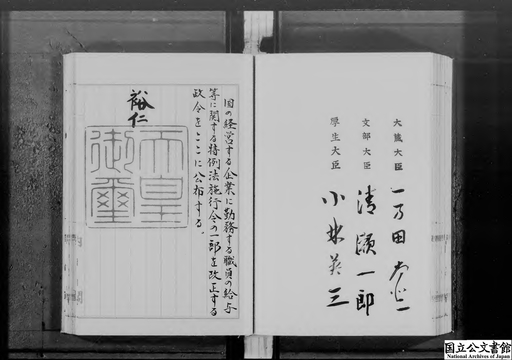 大蔵大臣 一万田尚登
文部大臣 清瀬一郎
厚生大臣 小林英三
国の経営する企業に勤務する職員の給与
等に関する特例法施行令の一部を改正する
政令をここに公布する。
裕仁
天皇
御璽
国立公文書館
National Archives of Japan